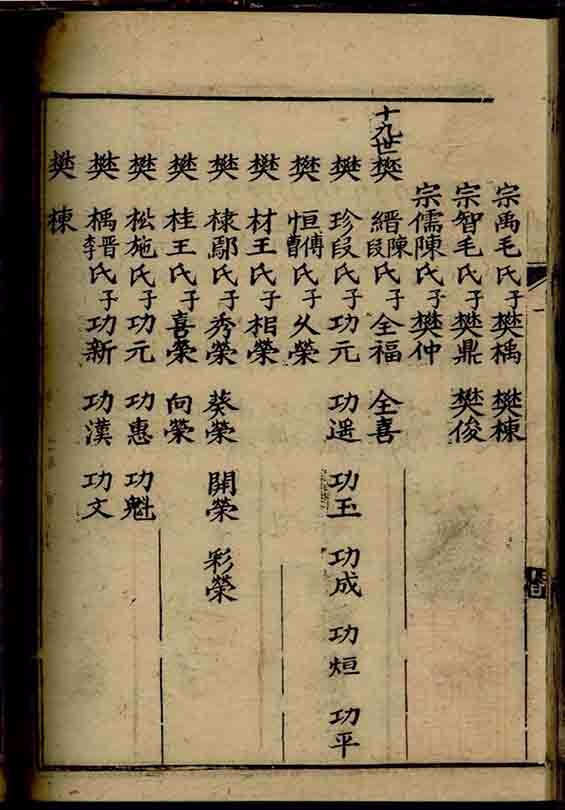 宗禹毛氏子樊楀 樊棟
宗智毛氏子樊鼎 樊俊
宗儒陳氏子樊仲
十九世樊縉陳段氏子全福 全喜
樊珍段氏子功元 功遥 功玉 功成 功烜 功平
樊恒傅曹氏子久榮
樊材王氏子相榮
樊棣鄢氏子秀榮 葵榮 開榮 彩榮
樊桂王氏子喜榮 向榮
樊松施氏子功元 功惠 功魁
樊楀晋李氏子功新 功漢 功文
樊棟